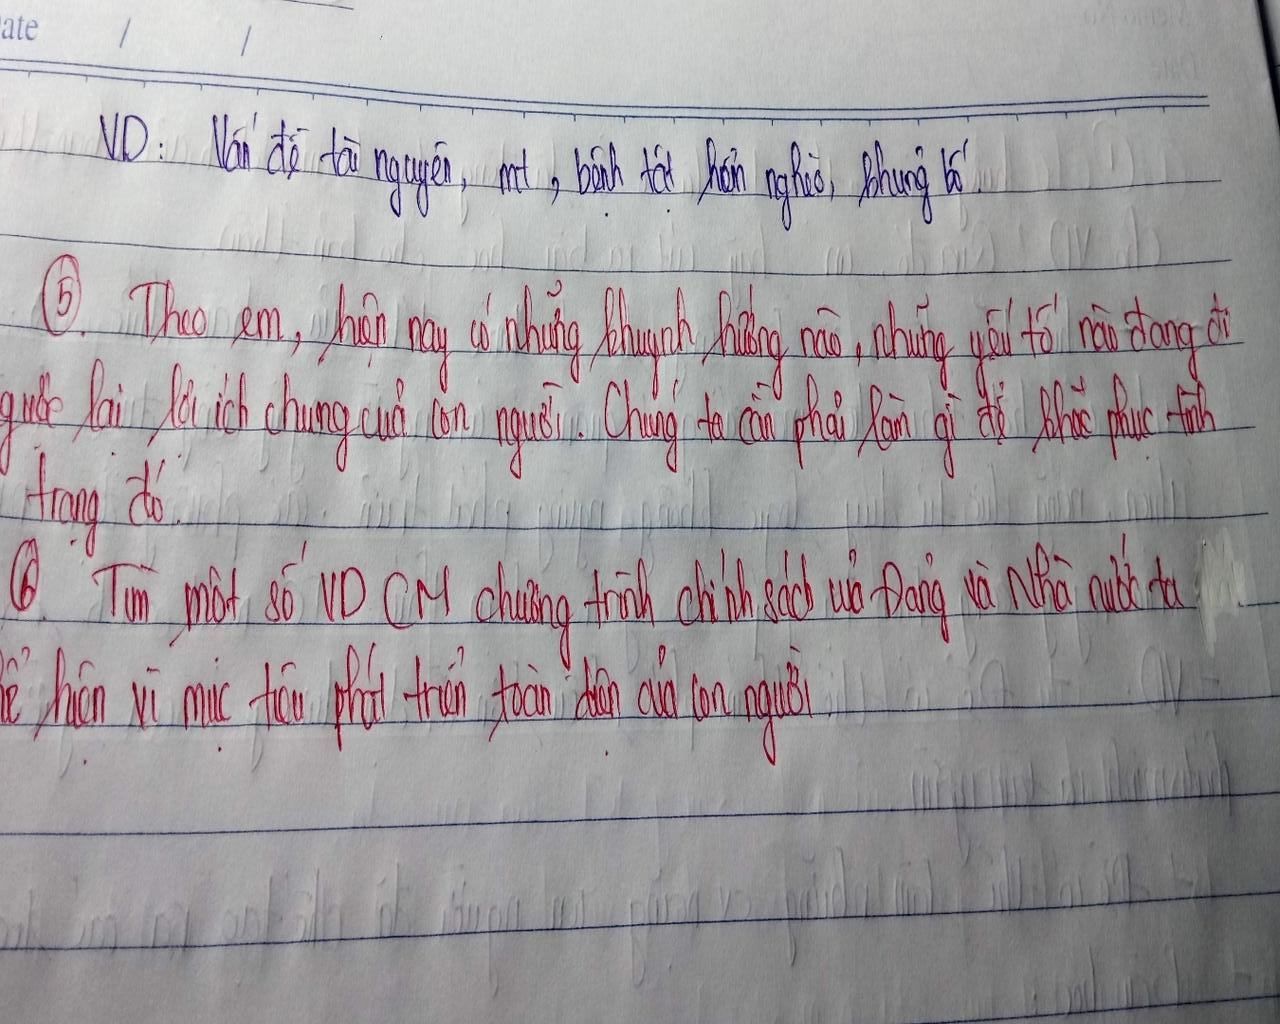 ate / /
VD: Vấn đề tài nguyên, mt, bệnh tật hến nghèo, khủng bố.
⑤. Theo em, hiện nay có những khuynh hướng nào, những yếu tố nào đang đi
ngược lại lợi ích chung của con người. Chúng ta cần phải làm gì để khắc phục tình
trạng đó.
⑥ Tìm một số VD CM chương trình chính sách của Đảng và Nhà nước ta
hể hiện vì mục tiêu phát triển toàn diện của con người